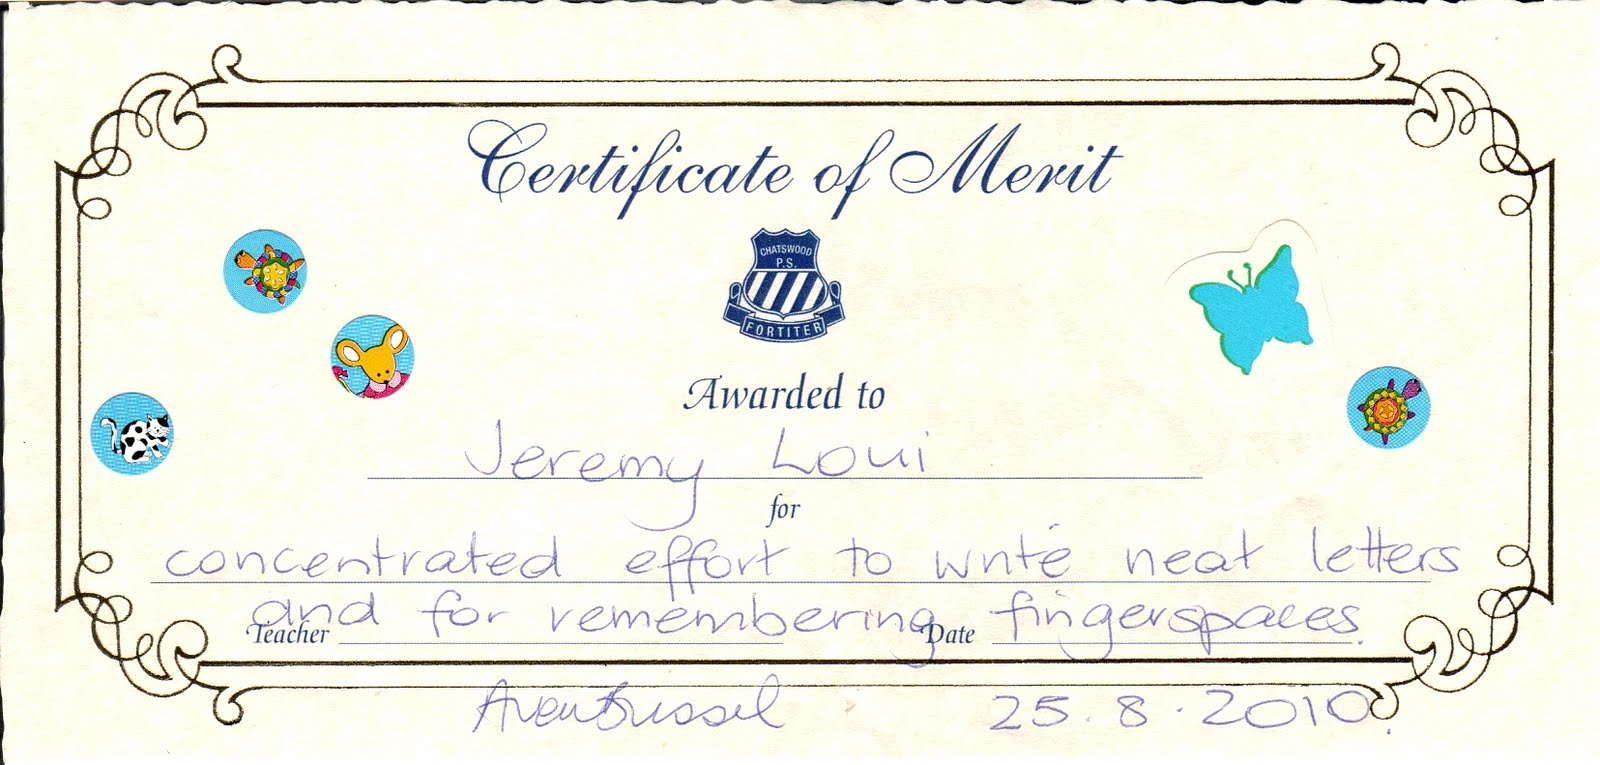 Certificate of Merit
CHATSWOOD
P.S.
FORTITER
Awarded to
Jeremy Loui
for
concentrated effort to write neat letters
and for remembering fingerspaces.
Teacher Date
25.8.2010.